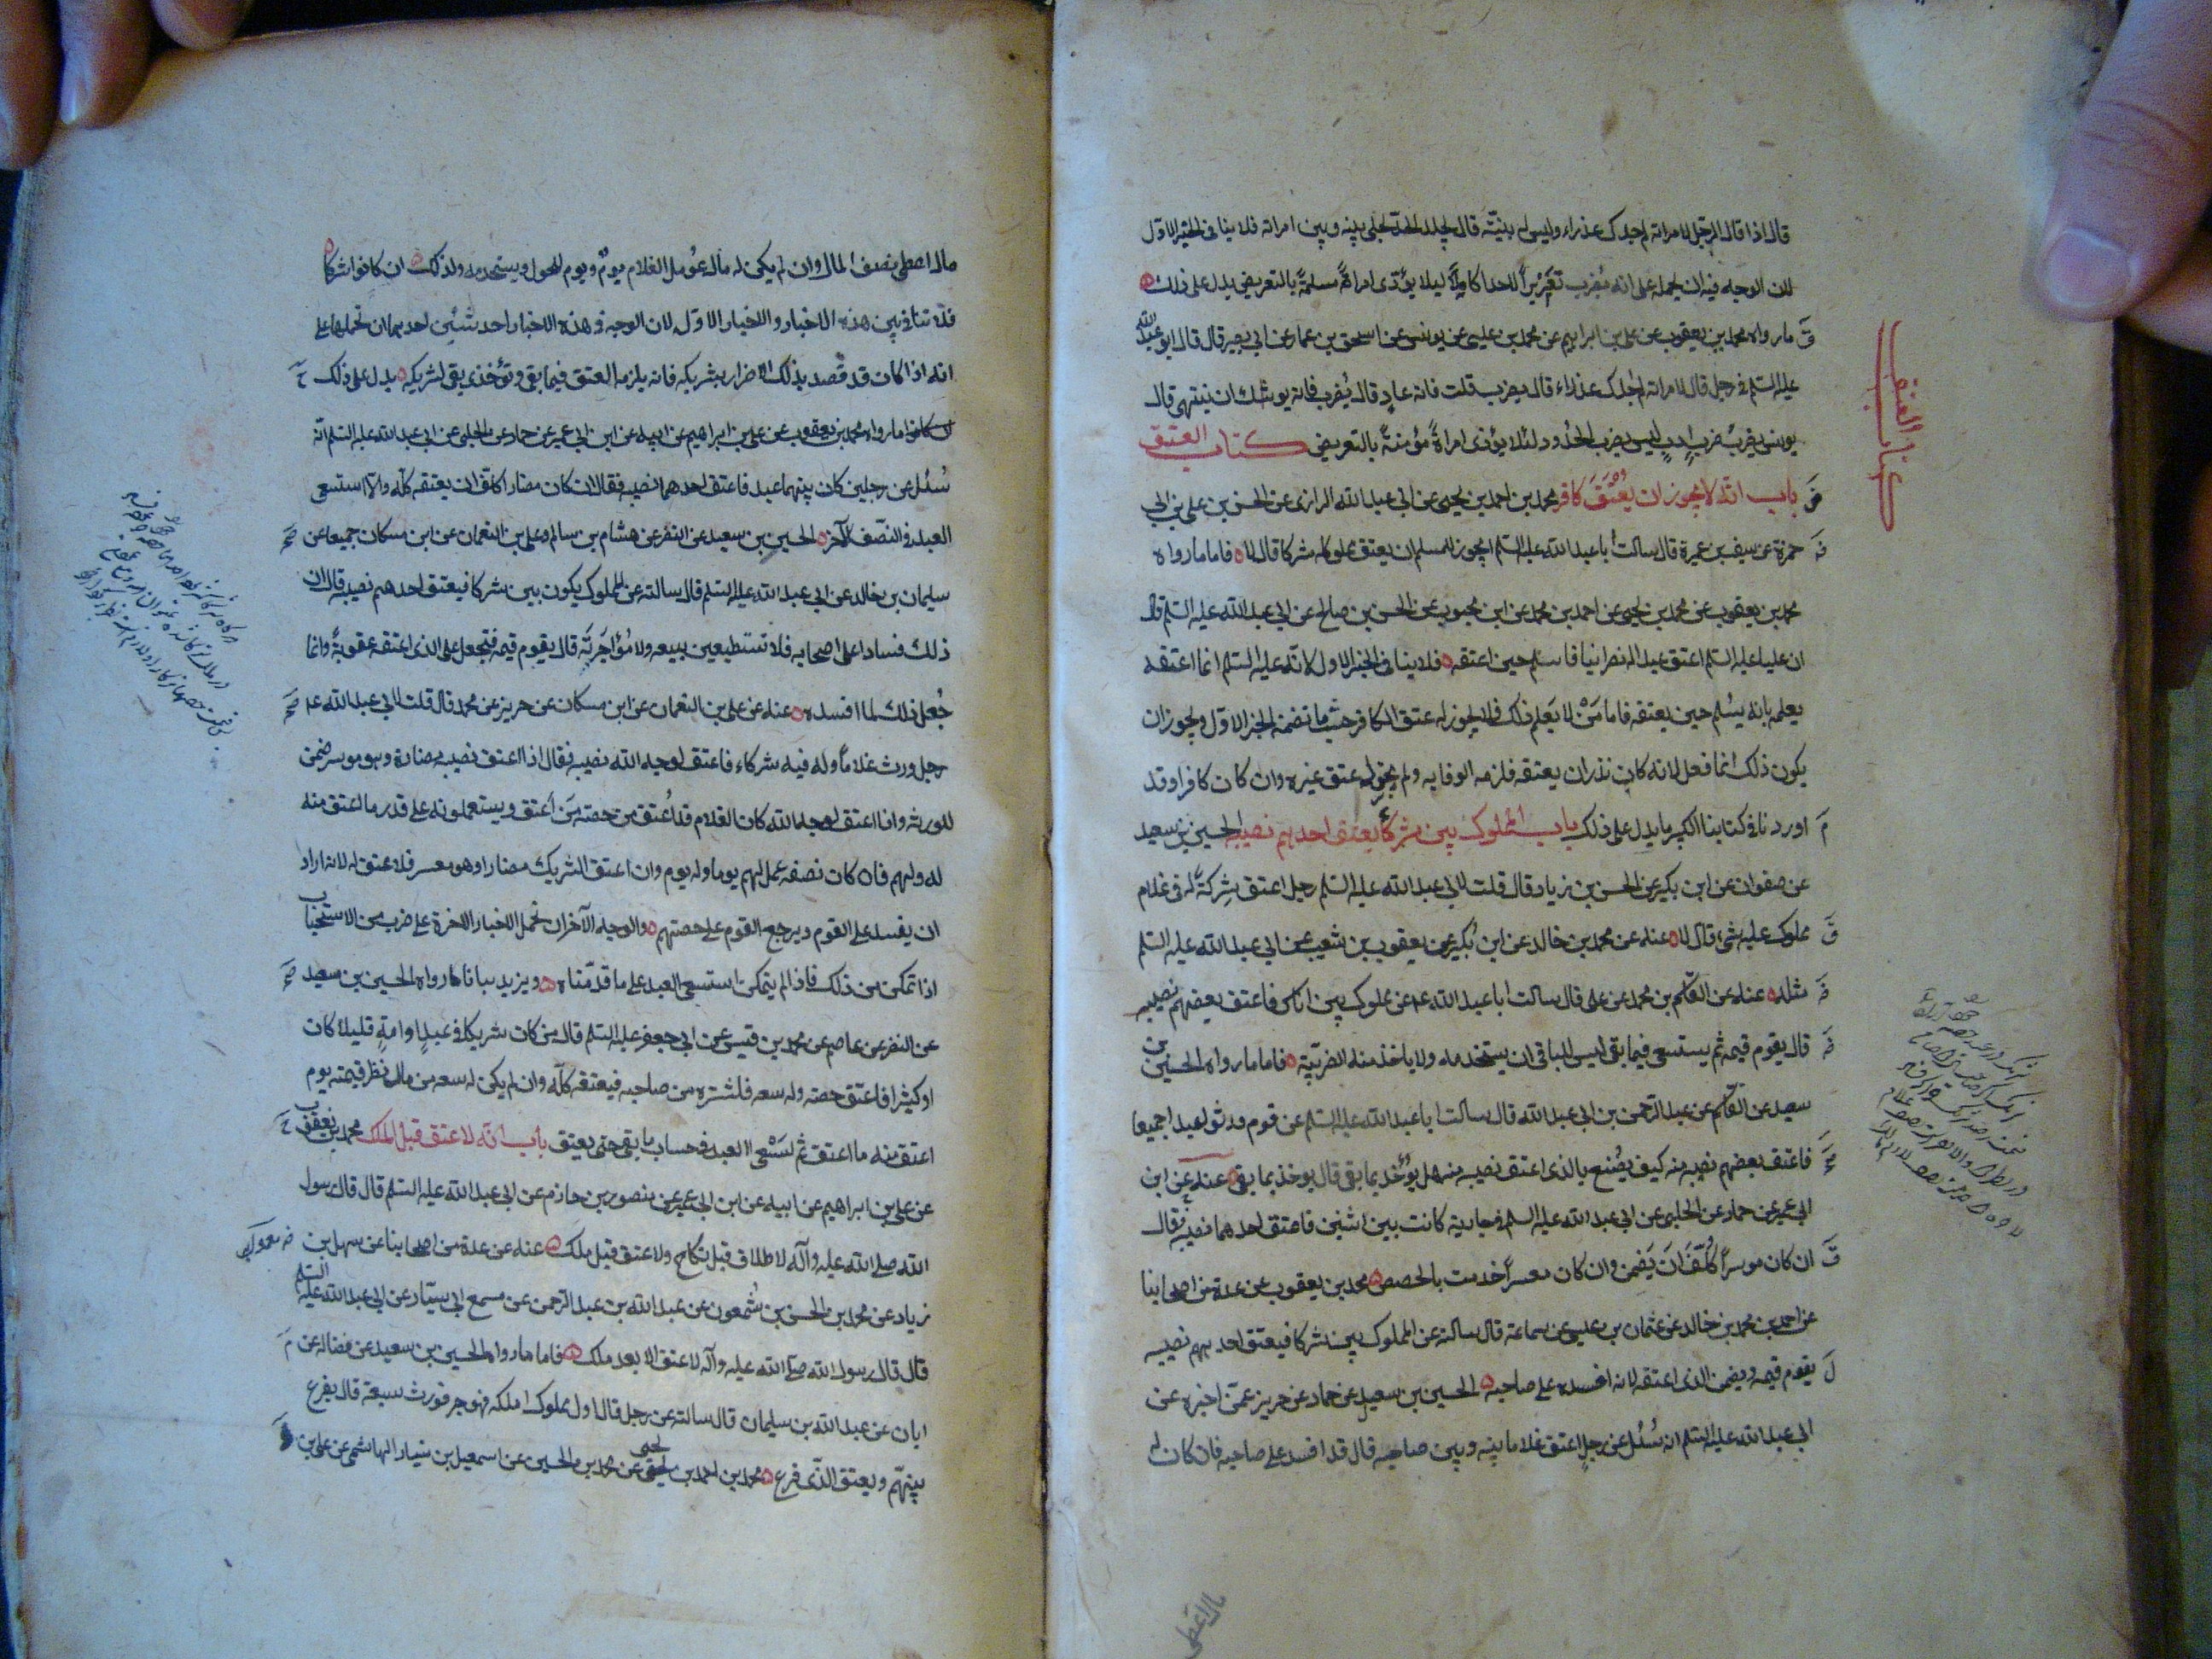 قال اذا قال الرجل لامراته لم اجدك عذراء وليس له بينة قال يجلد الحد ويخلى بينه وبين امراته فلا ينافى الخبر الاول
لان الوجه فيه ان نحمله على انه يضرب تعزيرا لا حدا كاملا ليلا يؤذى امراة مسلمة بالتعريض يدل على ذلك
ما رواه محمد بن يعقوب عن على بن ابراهيم عن محمد بن عيسى عن يونس عن اسحق بن عمار عن ابى بصير قال قال ابو عبد الله
عليه السلم فى رجل قال لامراته لم اجدك عذراء قال يضرب قلت فانه عاد قال يضرب فانه يوشك ان ينتهى قال
يونس يضرب ضرب ادب ليس يضرب الحدود لئلا يؤذى امراة مؤمنة بالتعريض كتاب العتق
كتاب العتق
باب انه لا يجوز ان يعتق كافر محمد بن احمد بن يحيى عن ابى عبد الله الرازى عن الحسن بن على بن ابى
حمزة عن سيف بن عميرة قال سالت ابا عبد الله عليه السلم ايجوز للمسلم ان يعتق مملوكا مشركا قال لا فاما ما رواه
محمد بن يعقوب عن محمد بن يحيى عن احمد بن محمد عن ابن محبوب عن الحسن بن صالح عن ابى عبد الله عليه السلم قال
ان عليا عليه السلم اعتق عبدا له نصرانيا فاسلم حين اعتقه فلا ينافى الخبر الاول لانه عليه السلم انما اعتقه
يعلمه بانه يسلم حين يعتقه فاما من لا يعلم ذلك فلا يجوز له عتق الكافر حسب ما تضمنه الخبر الاول ويجوز ان
يكون ذلك انما فعل لانه كان نذر ان يعتقه فلزمه الوفا به ولم يجز له عتق غيره وان كان كافرا وقد
اوردنا فى كتابنا الكبير ما يدل على ذلك باب المملوك بين شركاء يعتق احدهم نصيبه الحسين بن سعيد
عن صفوان عن ابن بكير عن الحسن بن زياد قال قلت لابى عبد الله عليه السلم رجل اعتق شركة له فى غلام
مملوك عليه شى قال لا عنه عن محمد بن خالد عن ابن بكير عن يعقوب بن شعيب عن ابى عبد الله عليه السلم
مثله عنه عن القسم بن محمد عن على قال سالت ابا عبد الله عم عن مملوك بين اناس فاعتق بعضهم نصيبه
قال يقوم قيمة ثم يستسعى فيما بقى ليس للباقى ان يستخدمه ولا ياخذ منه الضريبة فاما ما رواه الحسين بن
سعيد عن القسم عن عبد الرحمن بن ابى عبد الله قال سالت ابا عبد الله عليه السلم عن قوم ورثوا عبدا جميعا
فاعتق بعضهم نصيبه منه كيف يصنع بالذى اعتق نصيبه منه هل يؤخذ بما بقى قال يوخذ بما بقى عنه عن ابن
ابى عمير عن حماد عن الحلبى عن ابى عبد الله عليه السلم فى جارية كانت بين اثنين فاعتق احدهما نصيبه قال
ان كان موسرا كلف ان يضمن وان كان معسرا خدمت بالحصص محمد بن يعقوب عن عدة من اصحابنا
عن احمد بن محمد بن خالد عن عثمان بن عيسى عن سماعة قال سالته عن المملوك بين شركا فيعتق احدهم نصيبه
يقوم قيمة ويضمن الذى اعتقه لانه افسده على صاحبه الحسين بن سعيد عن حماد عن حريز عمن اخبره عن
ابى عبد الله عليه السلم انه سئل عن رجل اعتق غلاما بينه وبين صاحبه قال قد افسد على صاحبه فان كان له
مال اعطى
مال اعطى نصف المال وان لم يكن له مال عومل الغلام يوم ويوم للمولى ويستخدمه وكذلك ان كانوا شركا
فلا تنافى بين هذه الاخبار والاخبار الاول لان الوجه فى هذه الاخبار احد شئين احدهما ان نحملها على
انه اذا كان قد قصد بذلك الاضرار بشريكه فانه يلزمه العتق فيما بقى وتؤخذ بقى لشريكه يدل على ذلك
ما رواه محمد بن يعقوب عن على بن ابراهيم عن ابيه عن ابن ابى عمير عن حماد عن الحلبى عن ابى عبد الله عليه السلم انه
سئل عن رجلين كان بينهما عبد فاعتق احدهما نصيبه فقال ان كان مضارا كلف ان يعتقه كله والا استسعى
العبد فى النصف الآخر الحسين بن سعيد عن النضر عن هشام بن سالم وعلى بن النعمان عن ابن مسكان جميعا عن
سليمان بن خالد عن ابى عبد الله عليه السلم قال سالته عن المملوك يكون بين شركا فيعتق احدهم نصيبه قال ان
ذلك فسادا على اصحابه فلا تستطيعون بيعه ولا مؤاجرته قال يقوم قيمة فتجعل على الذى اعتقه عقوبة وانما
جعل ذلك لما افسده عنه عن على بن النعمان عن ابن مسكان عن حريز عن محمد قال قلت لابى عبد الله عم
رجل ورث غلاما وله فيه شركاء فاعتق لوجه الله نصيبه فقال اذا اعتق نصيبه مضارة وهو موسر ضمن
للورثة واذا اعتق لوجه الله كان الغلام قد اعتق من حصته من اعتق ويستعملونه على قدر ما اعتق منه
له ولهم فان كان نصفه عمل لهم يوما وله يوم وان اعتق الشريك مضارا وهو معسر فلا عتق له لانه اراد
ان يفسد على القوم ويرجع القوم على حصتهم والوجه الآخر ان نحمل الاخبار الاخرة على ضرب من الاستحباب
اذا تمكن من ذلك فاذا لم يتمكن استسعى العبد على ما قدمناه ويزيد بيانا ما رواه الحسين بن سعيد
عن النضر عن عاصم عن محمد بن قيس عن ابى جعفر عليه السلم قال من كان شريكا فى عبد او امة قليلا كان
او كثيرا فاعتق حصته وله سعه فلشتره من صاحبه فيعتقه كله وان لم يكن له سعه من مال نظر قيمته يوم
اعتق منه ما اعتق ثم يسعى العبد فى حساب ما بقى حتى يعتق باب انه لا عتق قبل الملك محمد بن يعقوب
عن على بن ابراهيم عن ابيه عن ابن ابى عمير عن منصور بن حازم عن ابى عبد الله عليه السلم قال قال رسول
الله صلى الله عليه وآله لا طلاق قبل نكاح ولا عتق قبل ملك عنه عن عدة من اصحابنا عن سهل بن
زياد عن محمد بن الحسن بن شمعون عن عبد الله بن عبد الرحمن عن مسمع ابى سيار عن ابى عبد الله عليه السلم
قال قال رسول الله صلى الله عليه وآله لا عتق الا بعد ملك فاما ما رواه الحسين بن سعيد عن فضالة عن
ابان عن عبد الله بن سليمان قال سالته عن رجل قال اول مملوك املكه فهو حر فورث سبعة قال يقرع
بينهم ويعتق الذى قرع محمد بن احمد بن يحيى عن محمد بن الحسين عن اسمعيل بن يسار الهاشمى عن على بن